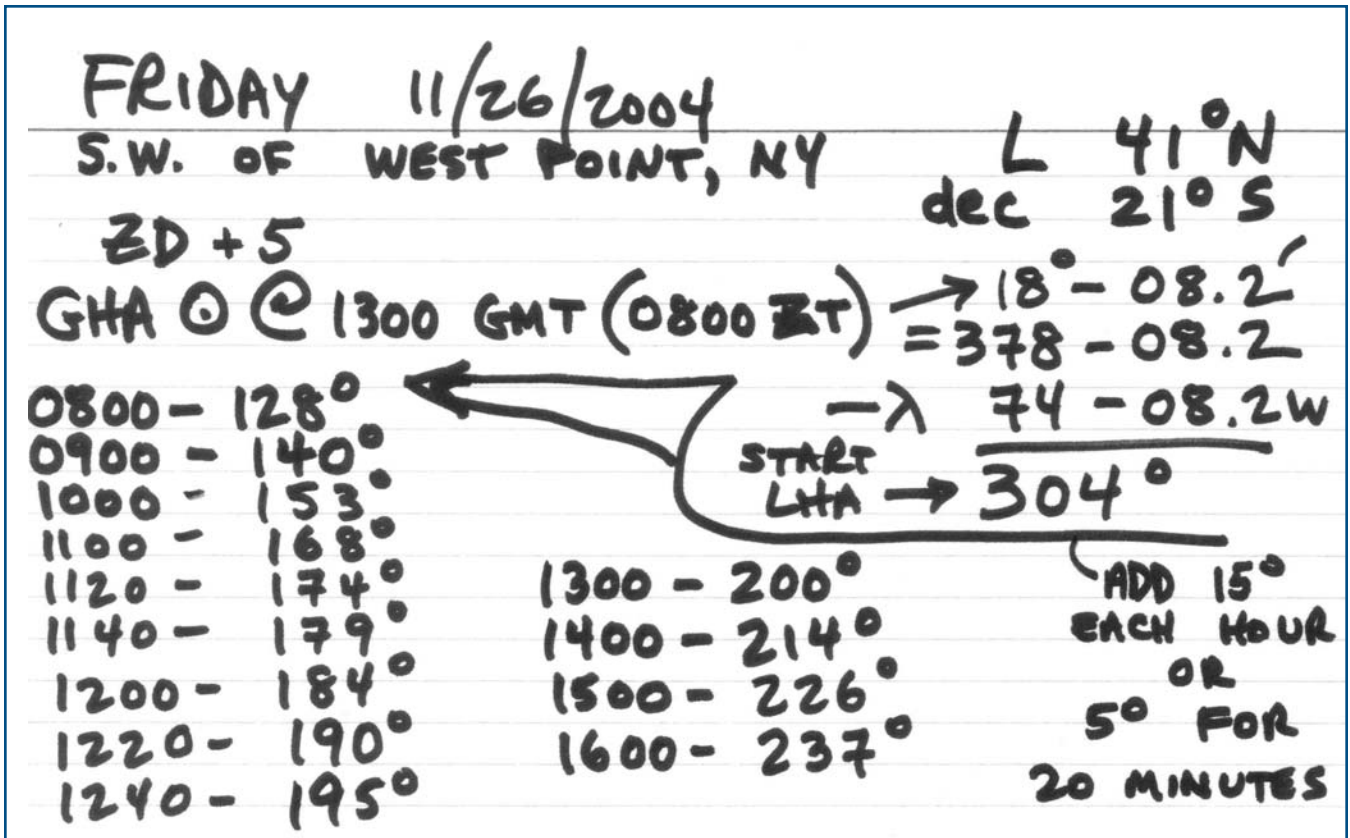 FRIDAY 11/26/2004
S.W. OF WEST POINT, NY
L 41°N
dec 21° S
ZD + 5
GHA ⊙ @ 1300 GMT (0800 ZT) → 18° - 08.2′
= 378 - 08.2
- λ 74 - 08.2W
START
LHA → 304°
ADD 15°
EACH HOUR
OR
5° FOR
20 MINUTES
0800 - 128°
0900 - 140°
1000 - 153°
1100 - 168°
1120 - 174°
1140 - 179°
1200 - 184°
1220 - 190°
1240 - 195°
1300 - 200°
1400 - 214°
1500 - 226°
1600 - 237°